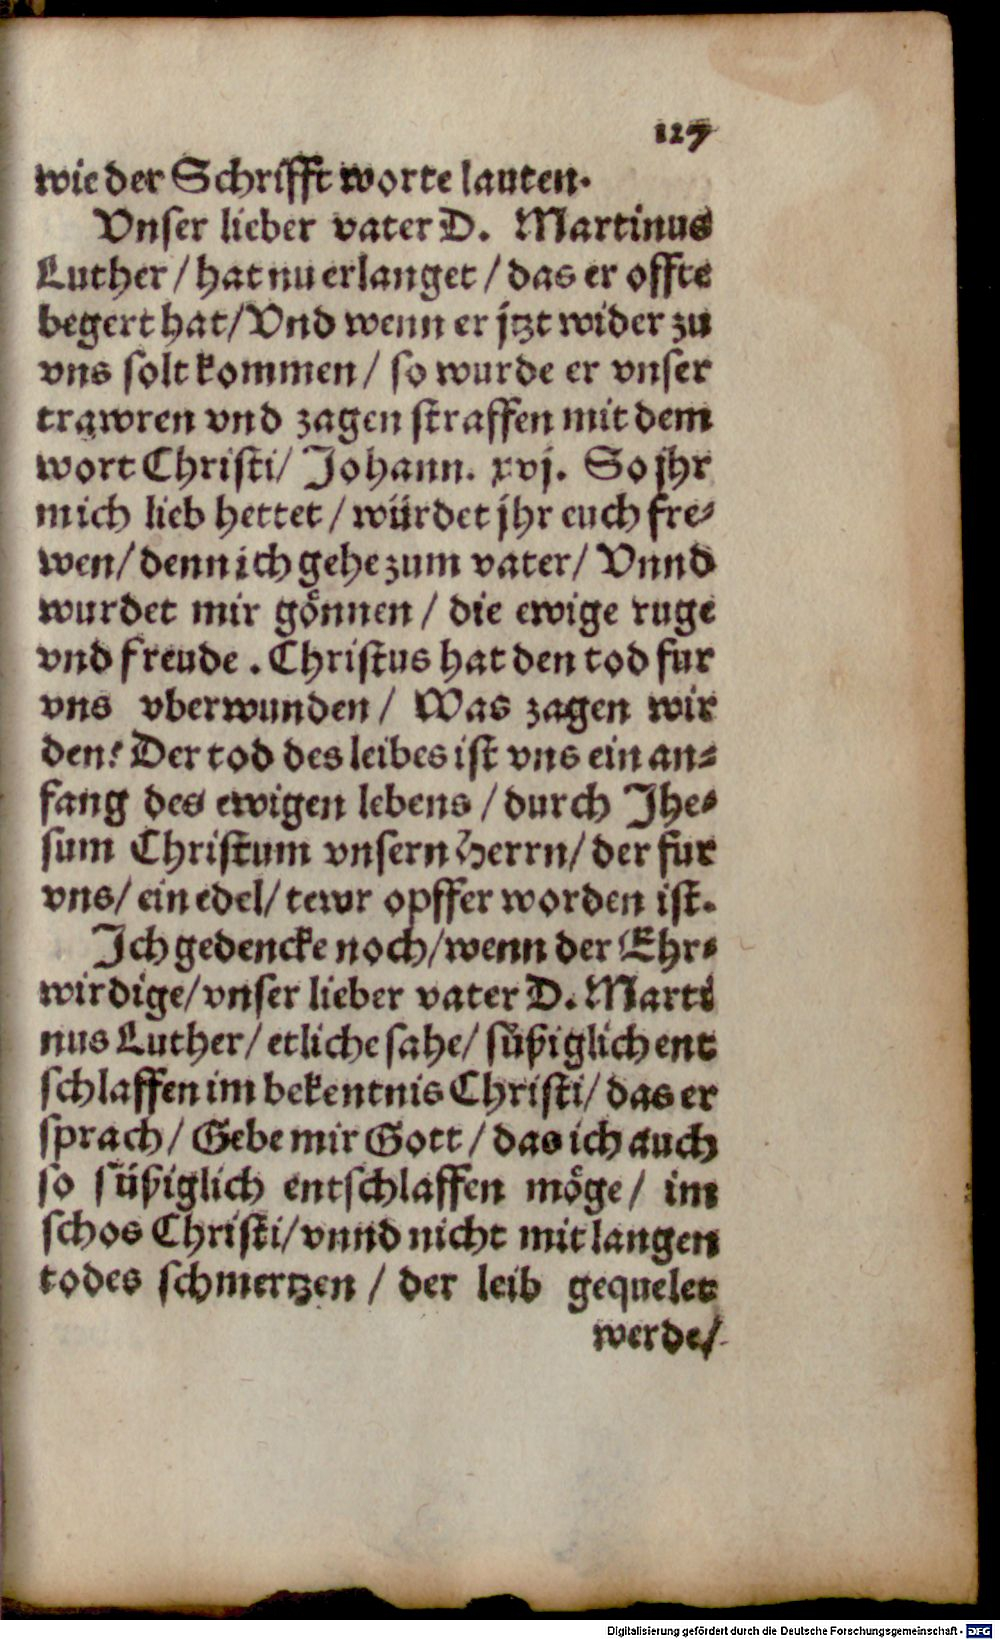 127
wie der Schrifft worte lauten.
Vnser lieber vater D. Martinus
Luther / hat nu erlanget / das er offte
begert hat / Vnd wenn er jtzt wider zu
vns solt kommen / so wurde er vnser
trawren vnd zagen straffen mit dem
wort Christi / Johann. xvj. So jhr
mich lieb hettet / würdet jhr euch fre-
wen / denn ich gehe zum vater / Vnnd
wurdet mir gönnen / die ewige ruge
vnd freude . Christus hat den tod fur
vns vberwunden / Was zagen wir
den? Der tod des leibes ist vns ein an-
fang des ewigen lebens / durch Jhe-
sum Christum vnsern Herrn / der fur
vns / ein edel / tewr opffer worden ist.
Ich gedencke noch / wenn der Ehr-
wirdige / vnser lieber vater D. Marti
nus Luther / etliche sahe / süßiglich ent
schlaffen im bekentnis Christi / das er
sprach / Gebe mir Gott / das ich auch
so süßiglich entschlaffen möge / im
schos Christi / vnnd nicht mit langen
todes schmertzen / der leib gequelet
werde /
Digitalisierung gefördert durch die Deutsche Forschungsgemeinschaft - DFG